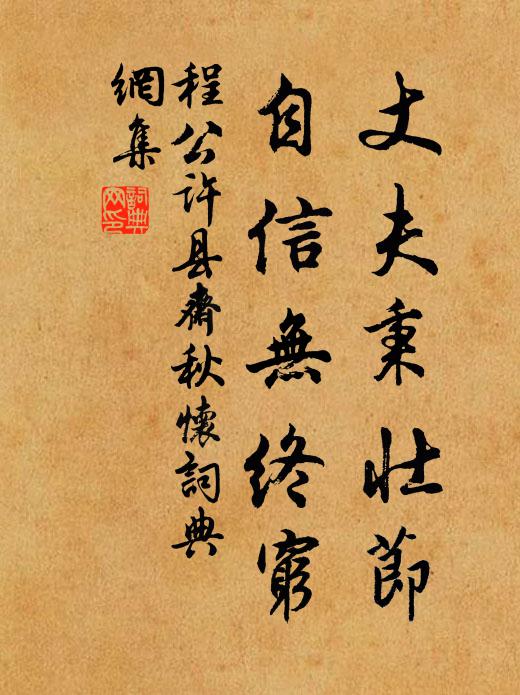 丈夫秉壮節
自信無終窮
程公许县齋秋懷詞典
網集
詞典
网印